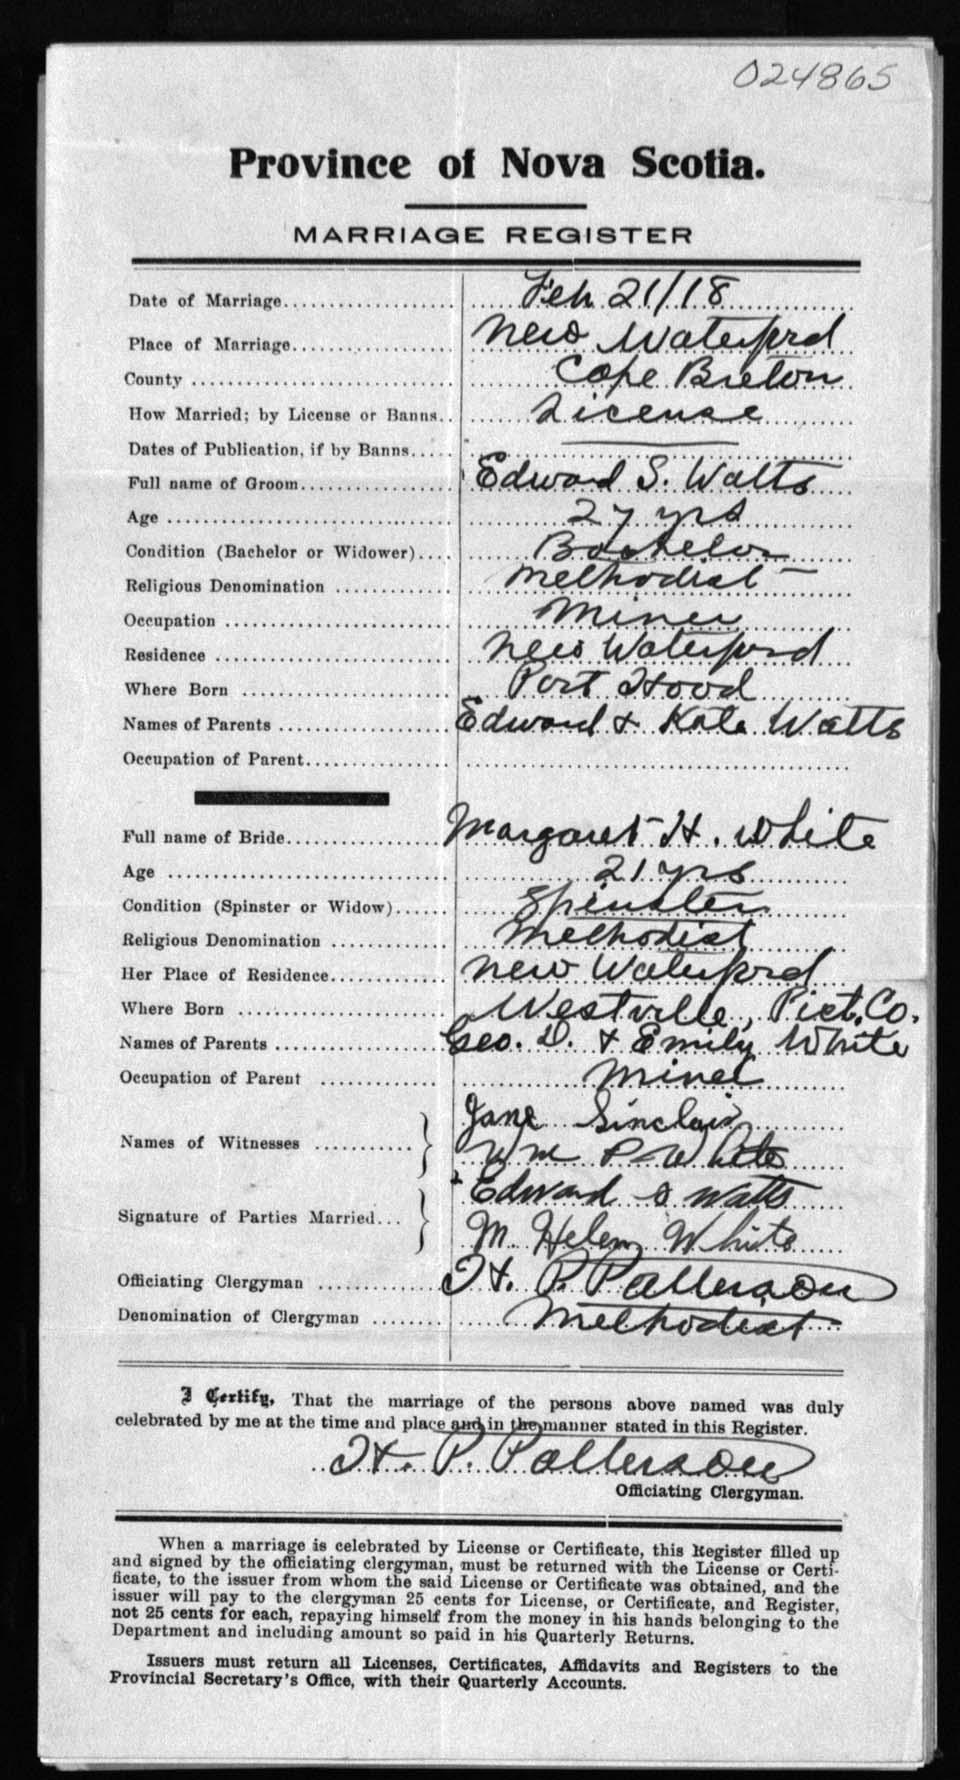 024865
Province of Nova Scotia.
MARRIAGE REGISTER
Date of Marriage Feb 21/18
Place of Marriage New Waterford
County Cape Breton
How Married; by License or Banns License
Dates of Publication, if by Banns
Full name of Groom Edward S. Watts
Age 27 yrs
Condition (Bachelor or Widower) Bachelor
Religious Denomination Methodist
Occupation Miner
Residence New Waterford
Where Born Port Hood
Names of Parents Edward & Kate Watts
Occupation of Parent
Full name of Bride Margaret H. White
Age 21 yrs
Condition (Spinster or Widow) Spinster
Religious Denomination Methodist
Her Place of Residence New Waterford
Where Born Westville, Pict. Co.
Names of Parents Geo. D. & Emily White
Occupation of Parent Miner
Names of Witnesses Jane Sinclair
Wm P White
Signature of Parties Married Edward S Watts
M. Helen White
Officiating Clergyman H. P. Patterson
Denomination of Clergyman Methodist
I Certify, That the marriage of the persons above named was duly
celebrated by me at the time and place and in the manner stated in this Register.
H. P. Patterson
Officiating Clergyman.
When a marriage is celebrated by License or Certificate, this Register filled up
and signed by the officiating clergyman, must be returned with the License or Certi-
ficate, to the issuer from whom the said License or Certificate was obtained, and the
issuer will pay to the clergyman 25 cents for License, or Certificate, and Register,
not 25 cents for each, repaying himself from the money in his hands belonging to the
Department and including amount so paid in his Quarterly Returns.
Issuers must return all Licenses, Certificates, Affidavits and Registers to the
Provincial Secretary's Office, with their Quarterly Accounts.